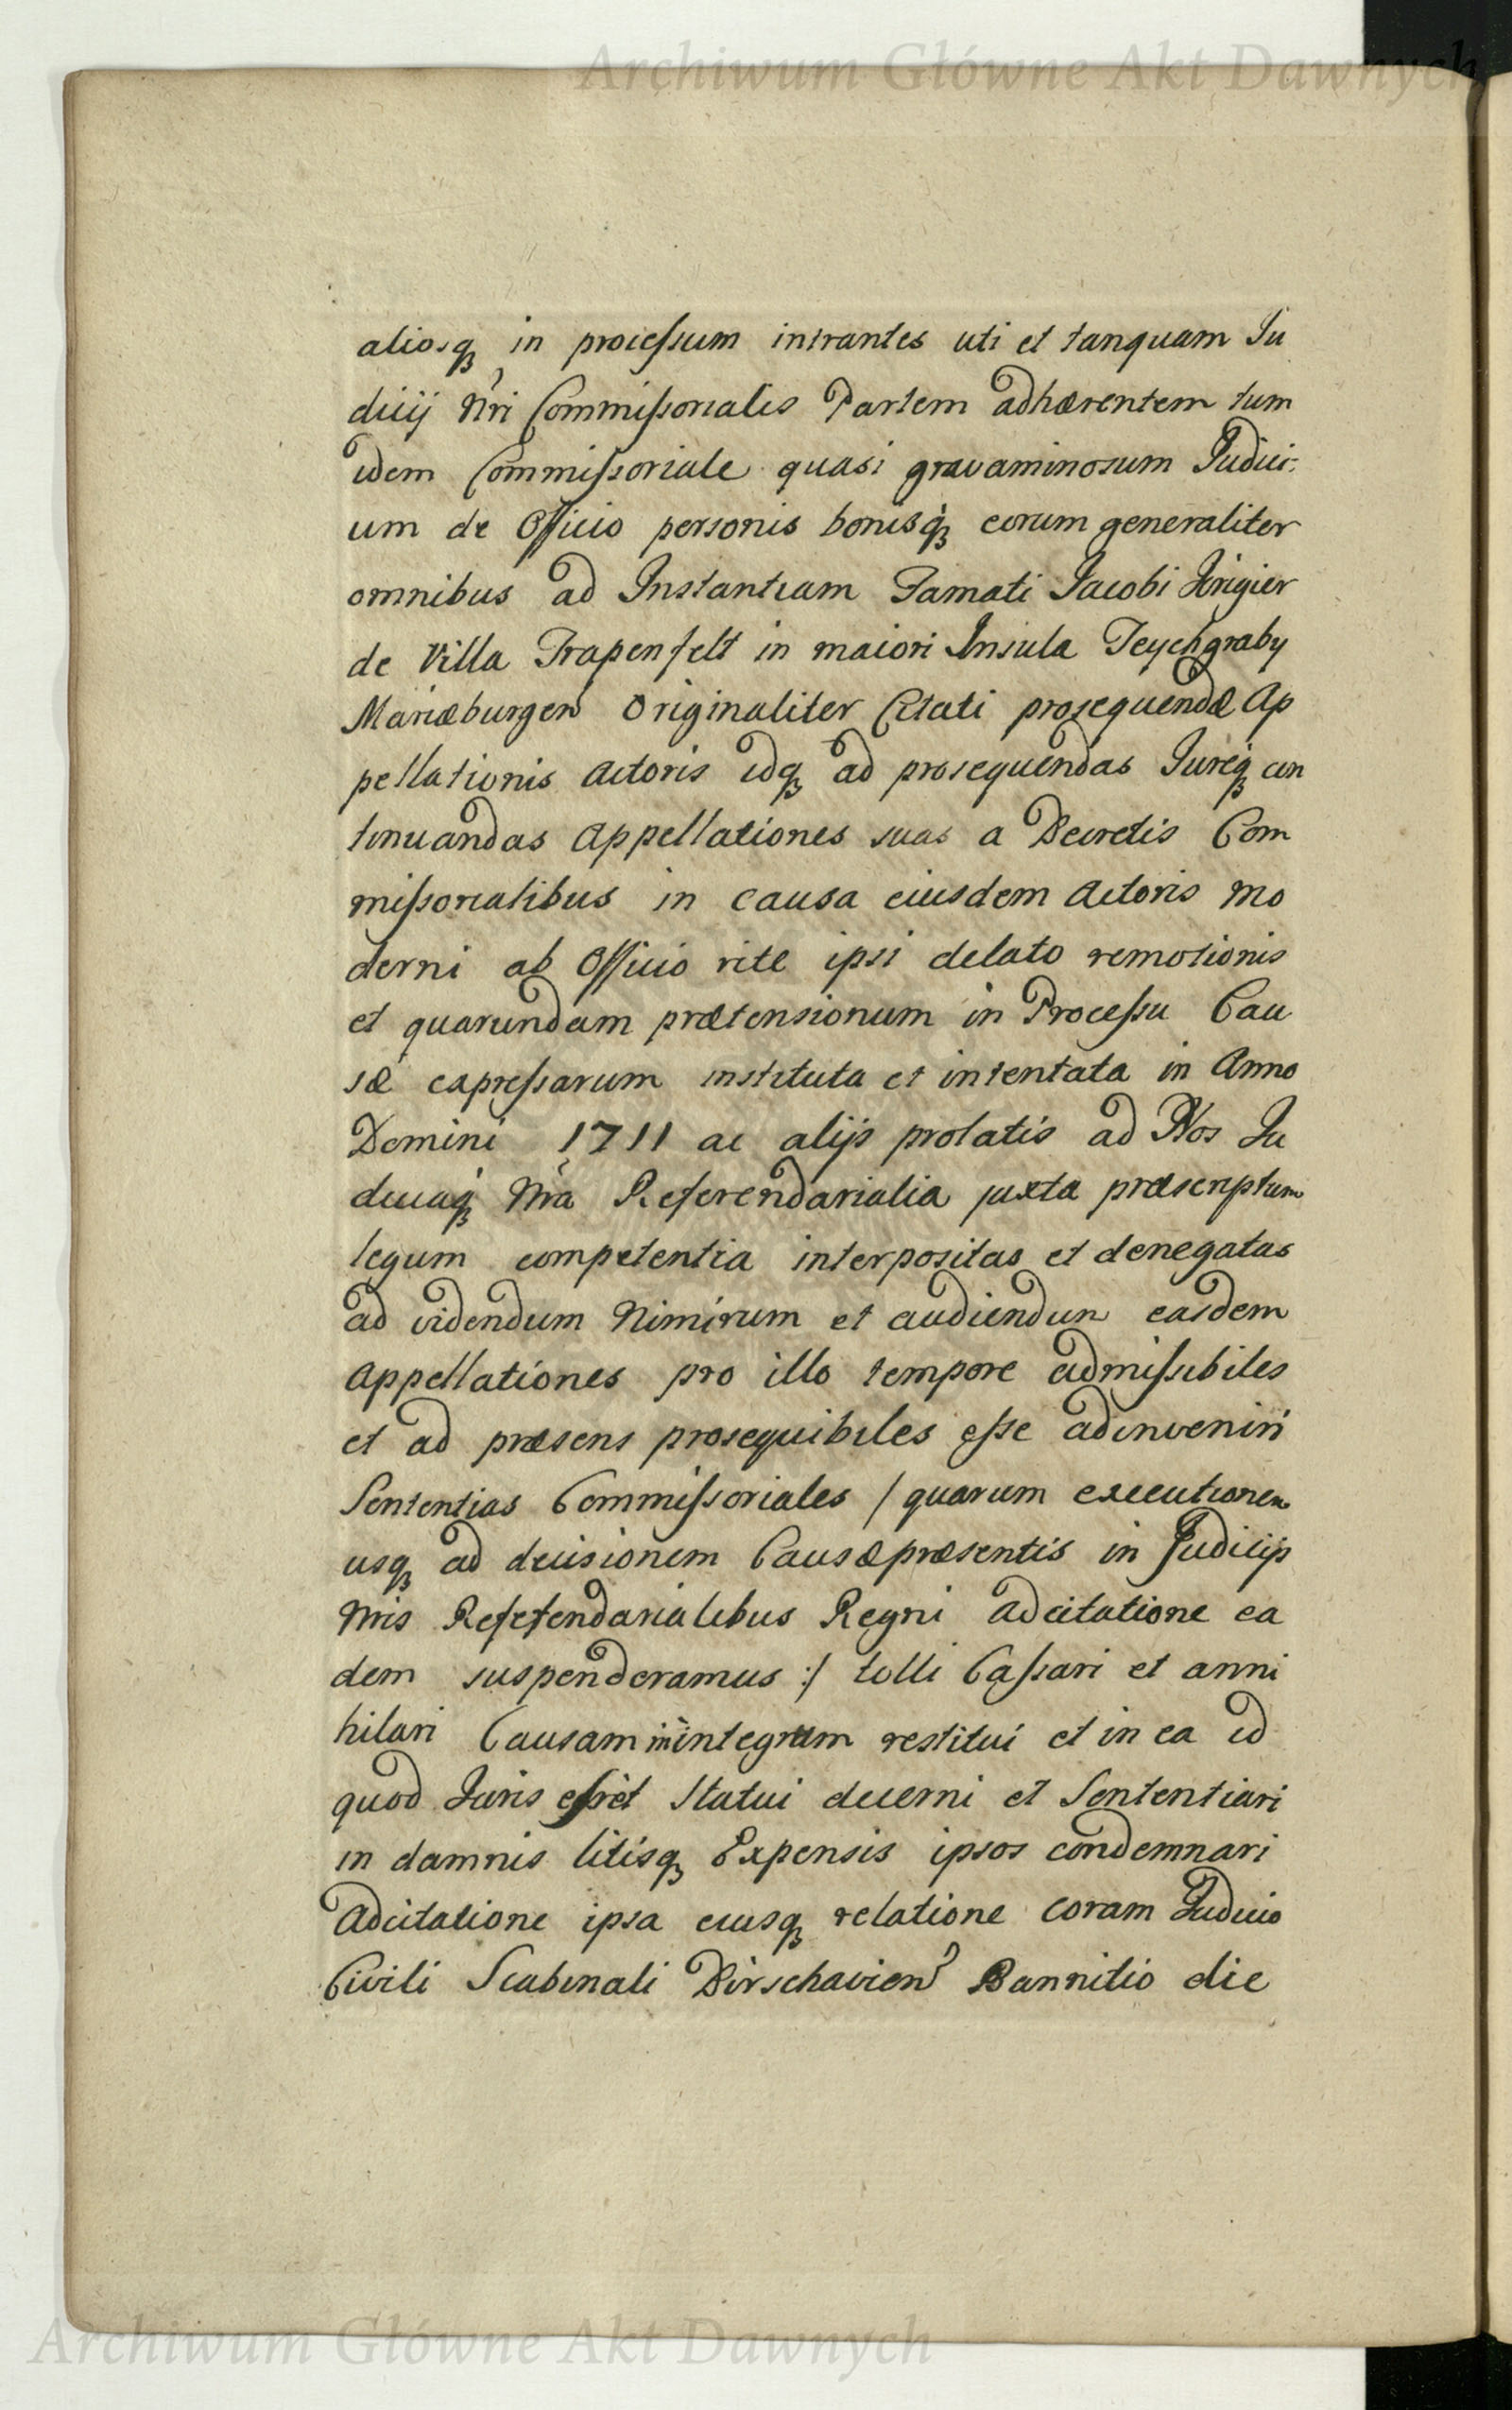 Archiwum Główne Akt Dawnych
aliosq, in processum intrantes uti et tanquam Iu
dicij Nri Commissorialis Partem adhærentem tum
idem Commissoriale quasi gravaminosum Judici-
um de Officio personis bonisq, eorum generaliter
omnibus ad Instantiam Famati Jacobi
de Villa Trapenfelt in maiori Insula Teychgraby
Mariæburgen Originaliter Citati prosequendæ Ap
pellationis Actoris idq, ad prosequendas Jureq, con
tinuandas Appellationes suas a Decretis Com
missorialibus in causa eiusdem Actoris mo
derni ab Officio rite ipsi delato remotionis
et quarundam prætensionum in Processu Cau
sæ expressarum instituta et intentata in Anno
Domini 1711 ac alijs prolatis ad Nos Ju
diciaq, Nra Referendarialia juxta præscriptum
legum competentia interpositas et denegatas
ad videndum Nimirum et audiendum easdem
Appellationes pro illo tempore admissibiles
et ad præsens prosequibiles esse adinveniri
Sententias Commissoriales / quarum executionem
usq, ad decisionem Causæ præsentis in Judicijs
Nris Referendarialibus Regni Adcitatione ea
dem suspenderamus :/ tolli Cassari et anni
hilari Causam in integrum restitui et in ea id
quod Juris esset Statui decerni et Sententiari
in damnis litisq, Expensis ipsos condemnari
Adcitatione ipsa eiusq, relatione coram Judicio
Civili Scabinali Dirschavien Bannitio die
Archiwum Główne Akt Dawnych